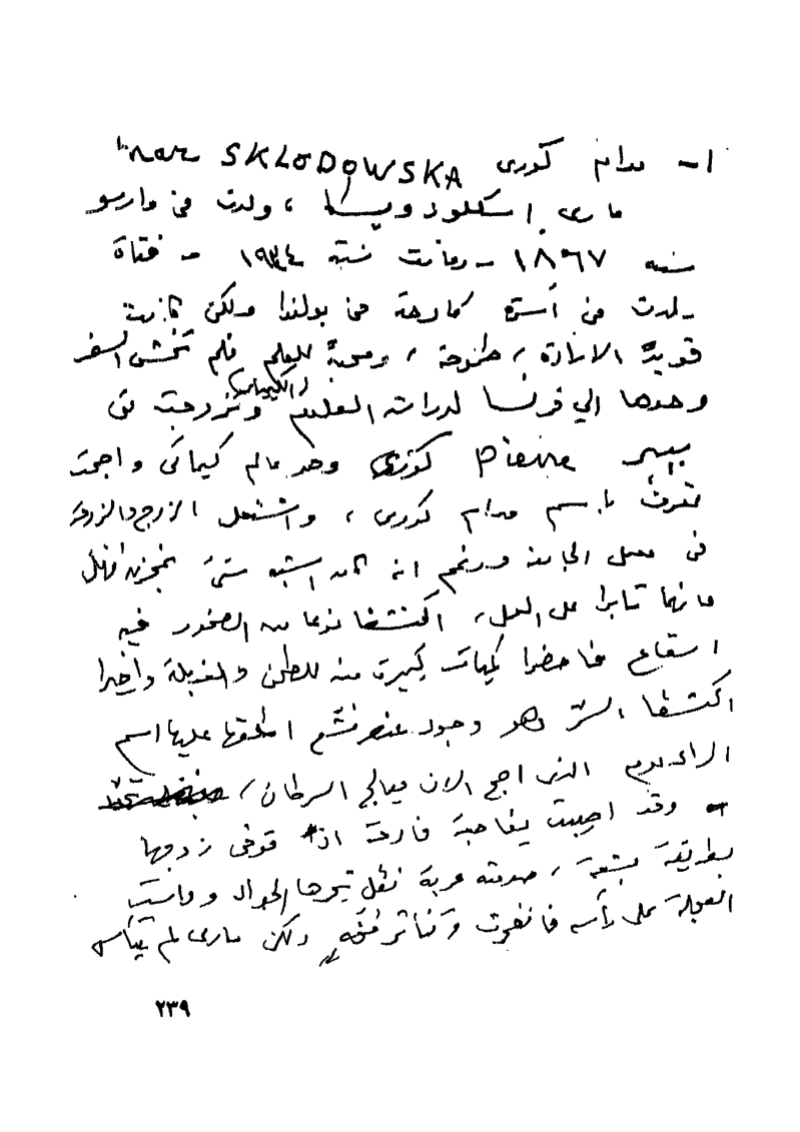 ١- مدام كورى Marie SKLODOWSKA
مارى إسكلودويسكا ، ولدت فى وارسو
سنه ١٨٦٧ - وماتت سنة ١٩٣٤ - فتاة
ولدت من أسرة كادحة فى بولندا ولكن كانت
قوية الارادة ، طموحة ، ومحبة للعلم فلم تخشى السفر
وحدها الي فرنسا لدراسة العلوم (الكيمياء) وتزوجت من
بيير Pierre كورى وهو عالم كيمائى واصبحت
تعرف باسم مدام كورى ، واشتغل الزوج والزوجة
فى معمل الجامعة ورغم انه كان اشبه شئ بمخزن مهمل
فانهما ثابرا على العمل، اكتشفا نوعا من الصخور فيه
اشعاع فاحضرا كميات كبيرة منه للطحن والغربلة واخيرا
اكتشفا السر وهو وجود عنصر مشع اطلقا عليها اسم
الراديوم الذى اصبح الان يعالج السرطان ،
- وقد اصيبت بفاجعة فادحة اذ توفى زوجها
بطريقة بشعة ، صدمته عربة نقل تجرها الجياد وداست
العجلة على رأسه فانفجرت وتناثر مخه ولكن مارى لم تيأس
٢٣٩